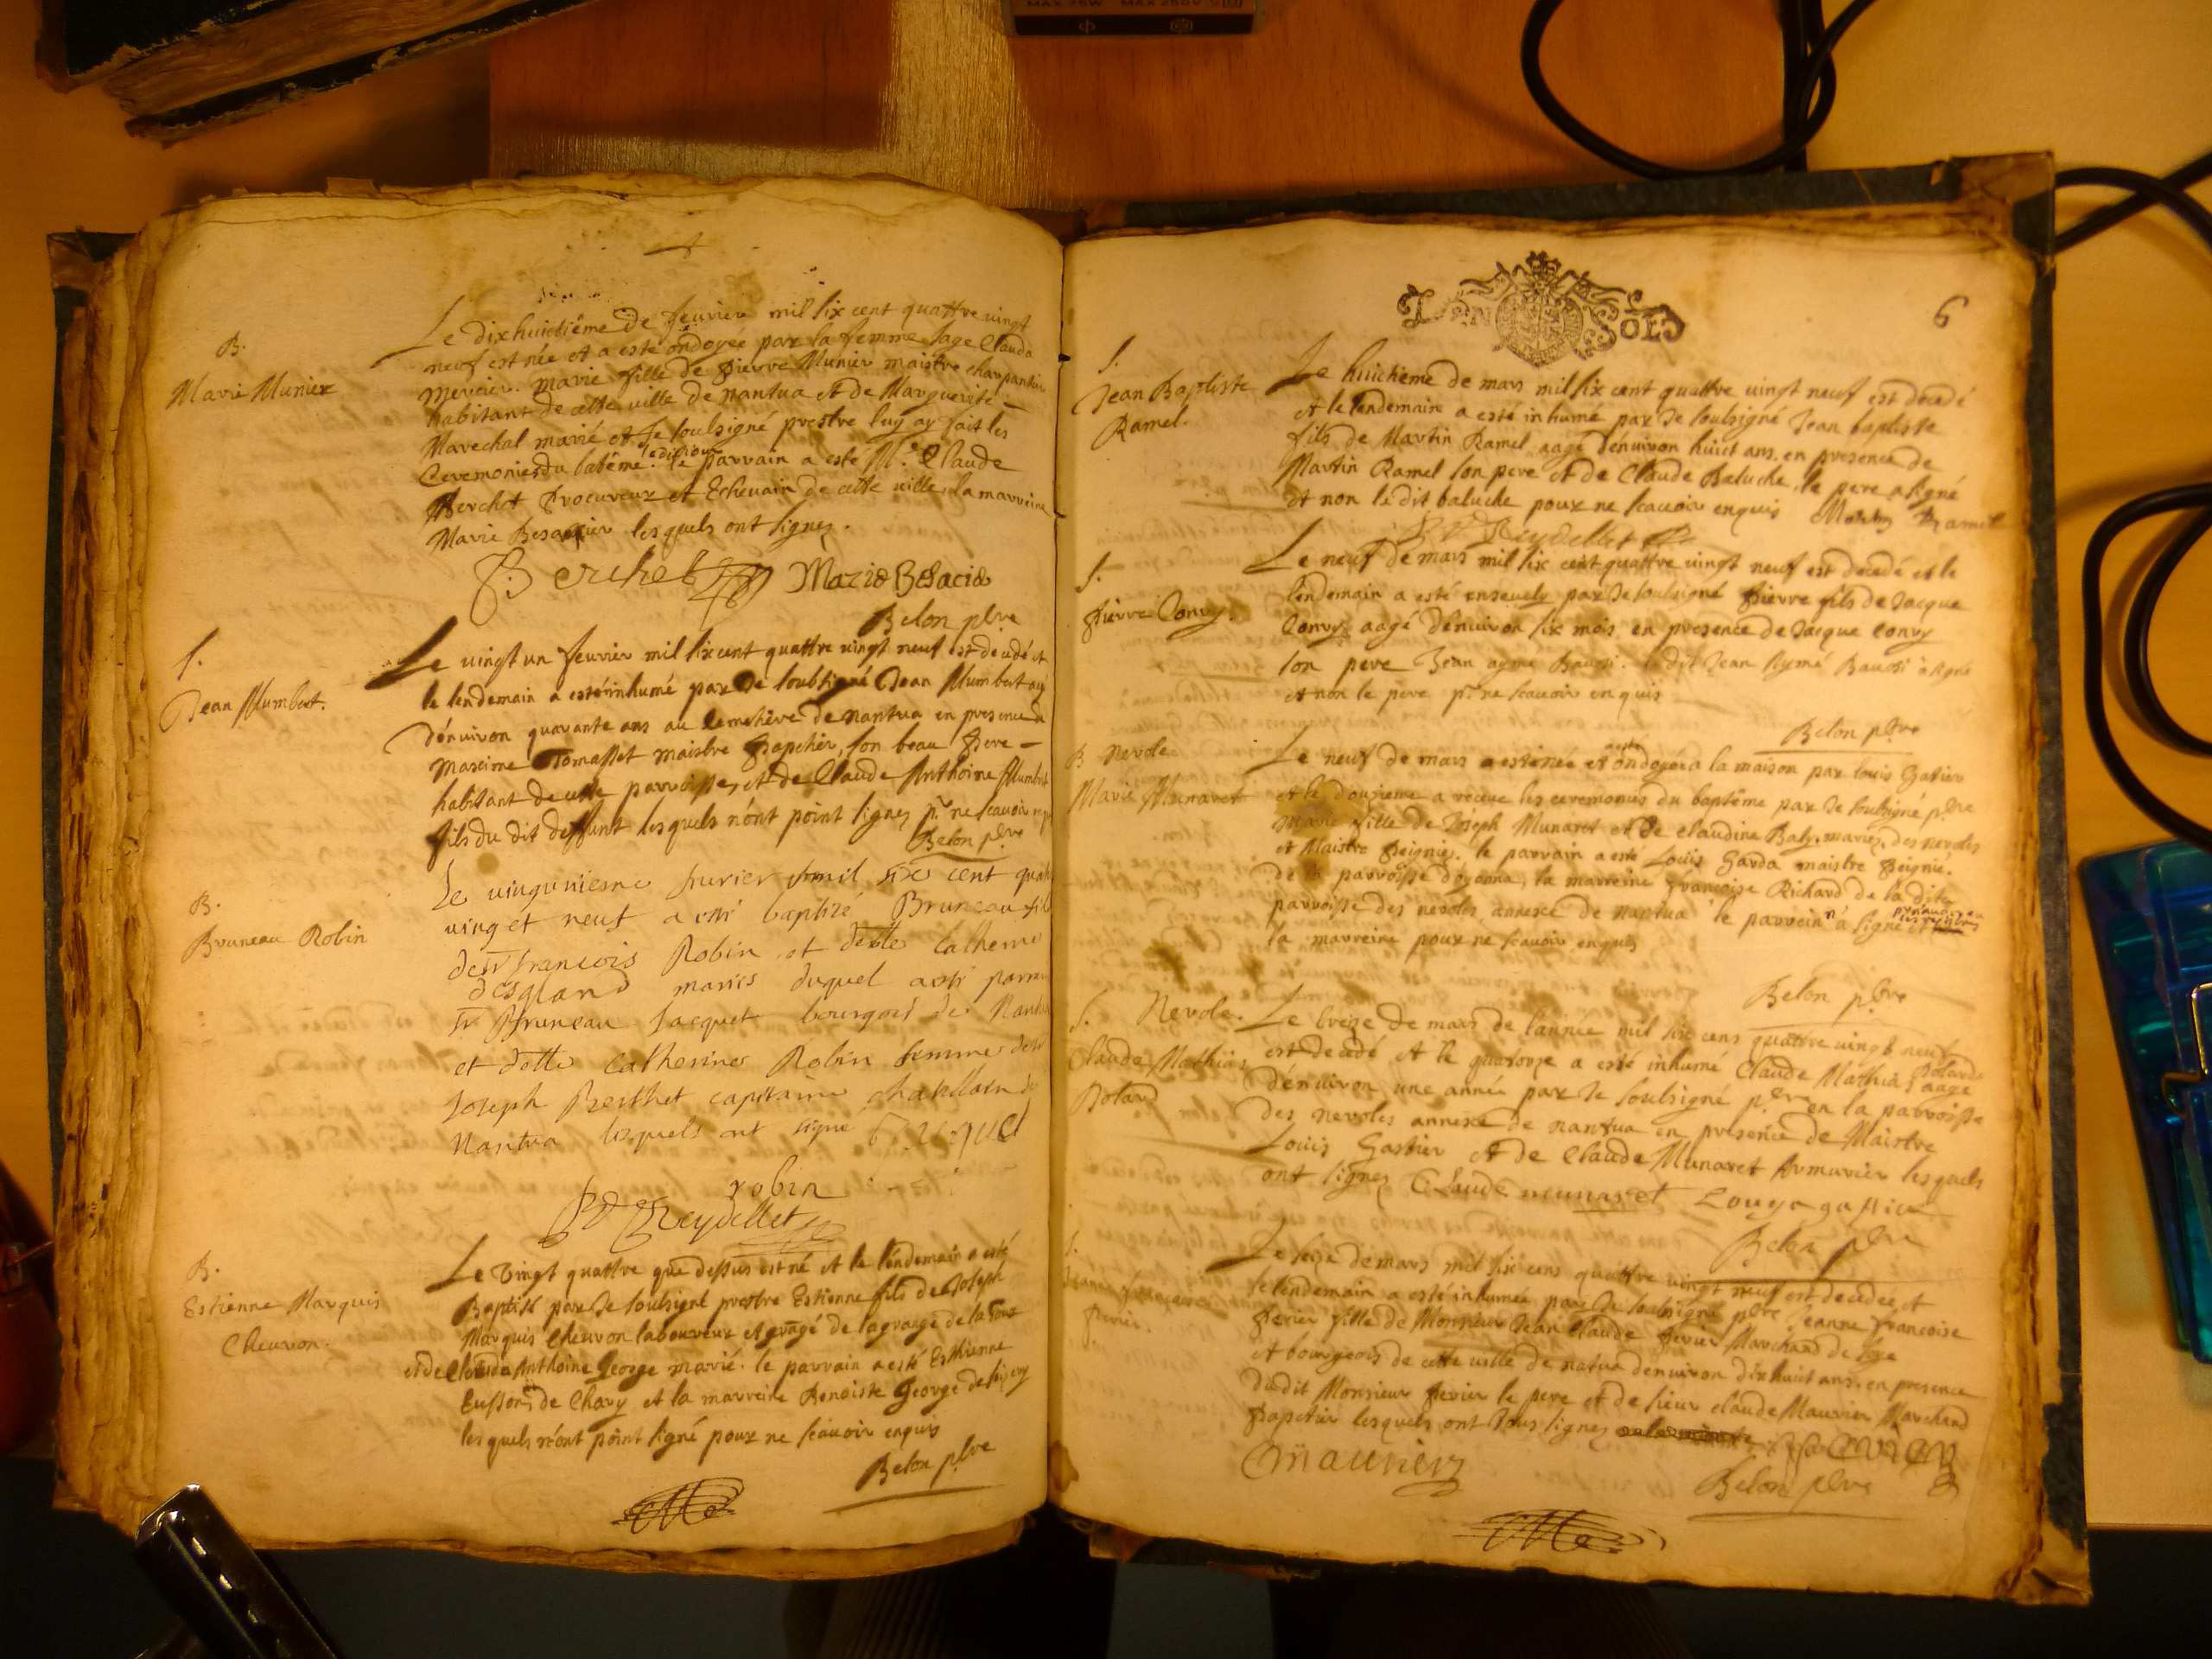 B.
Marie Munier
Le dixhuictiême de feurier mil six cent quattre vingt
neuf est née et a esté ondoyée par la femme sage Clauda
Mercier. marie fille de pierre Munier maistre charpantier
habitant de cette ville de nantua et de Marguerite –
Marechal marié et Je soubsigné prestre luy ay fait les
Ceremonies du batême. le parrain a esté Me. Claude
Berchet Procureur et Echevain de cette ville, la marreine
Marie Besacier lesquels ont signez.
Berchet Marie Besacie
Belon pbre
S.
Jean Humbert.
Le vingt un feurier mil six cent quattre vingt neuf est decedé et
le lendemain a esté inhumé par Je soubsigné Jean Humbert
dénuiron quarante ans au Cemetiere de nantua en presence de
maxime Tomasset maistre papetier, son beau frere –
habitant de cette parroisse, et de Claude Anthoine Humbert
fils du dit deffunt lesquels n'ont point signez pr. ne scauoir
Belon pbre
B.
Bruneau Robin
Le vingunieme feurier mil six cent quatre
ving et neuf a esté baptizé Bruneau fils
de sr francois Robin et de delle Catherine
desgland mariés duquel a esté parrain
sr Bruneau Jacquet bourgois de Nantua
et delle Catherine Robin femme de sr
Joseph Berthet capitaine chatellain de
Nantua lesquels ont signé
robin
Reydellet
B.
Estienne Marquis
Cheuron.
Le Vingt quattre que dessus est né et le lendemain a esté
Baptisé par Je soubsigné prestre Estienne fils de Joseph
Marquis Cheuron laboureur et grangé de la grange de la
et de Clauda Anthoine George marié. le parrain a esté Esthienne
de Chary et la marreine Benoiste George de
lesquels n'ont point signé pour ne scauoir enquis
Belon pbre
6
UN SOLS
S.
Jean Baptiste
Ramel.
Le huictieme de mars mil six cent quattre vingt neuf est decedé
et le lendemain a esté inhumé par Je soubsigné Jean baptiste
fils de Martin Ramel aagé denuiron huict ans. en presence de
Martin Ramel son pere et de Claude Baluche. le pere a signé
et non le dit baluche pour ne scauoir enquis Martin Ramel
Reydellet
S.
pierre Convy.
Le neuf de mars mil six cent quattre vingt neuf est decedé et le
lendemain a esté enseuely par Je soubsigné pierre fils de Jacque
Convy. aagé dénuiron six mois en presence de Jacque Convy
son pere Jean aymé Baudi. le dit Jean Aymé Baudi a signé
et non le pere pr. ne scauoir enquis
Belon pbre
B. nevole
Marie Munaret
Le neuf de mars a esté née et ondoyée a la maison par louis Gatier
et le douzieme a receue les ceremonies du baptême par Je soubsigné pbre
Marie fille de Joseph Munaret et de claudine Baly. mariés, des nevoles
et Maistre peignier. le parrain a esté Louis Garda maistre peignié.
de la parroisse d'oyonna, la marreine francoise Richard de la dite
parroisse des nevoles annexe de nantua le parrein n'a signé et
la marreine pour ne scauoir enquis
Belon pbre
S. Nevole.
Claude Mathias
Roland
Le treize de mars de l'année mil six cens quattre vingt neuf
est decedé et le quatorze a esté inhumé Claude Mathias Roland aagé
dénuiron une année par Je soubsigné pbre en la parroisse
des nevoles annexe de nantua en presence de Maistre
Louis Gastier et de Claude Munaret Armurier lesquels
ont signez Claude munaret Louys gastier
Belon pbre
S.
Jeanne francoise
perier.
Le seize de mars mil six cens quattre vingt neuf est decedée et
le lendemain a esté inhumée par Je soubsigné pbre Jeanne francoise
perier fille de Monsieur Jean Claude perier Marchand de
et bourgeois de cette ville de natua denuiron dixhuict ans. en presence
du dit Monsieur perier le pere et de sieur claude Maurier Marchand
papetier lesquels ont tous signez
Cmaurier
Belon pbre